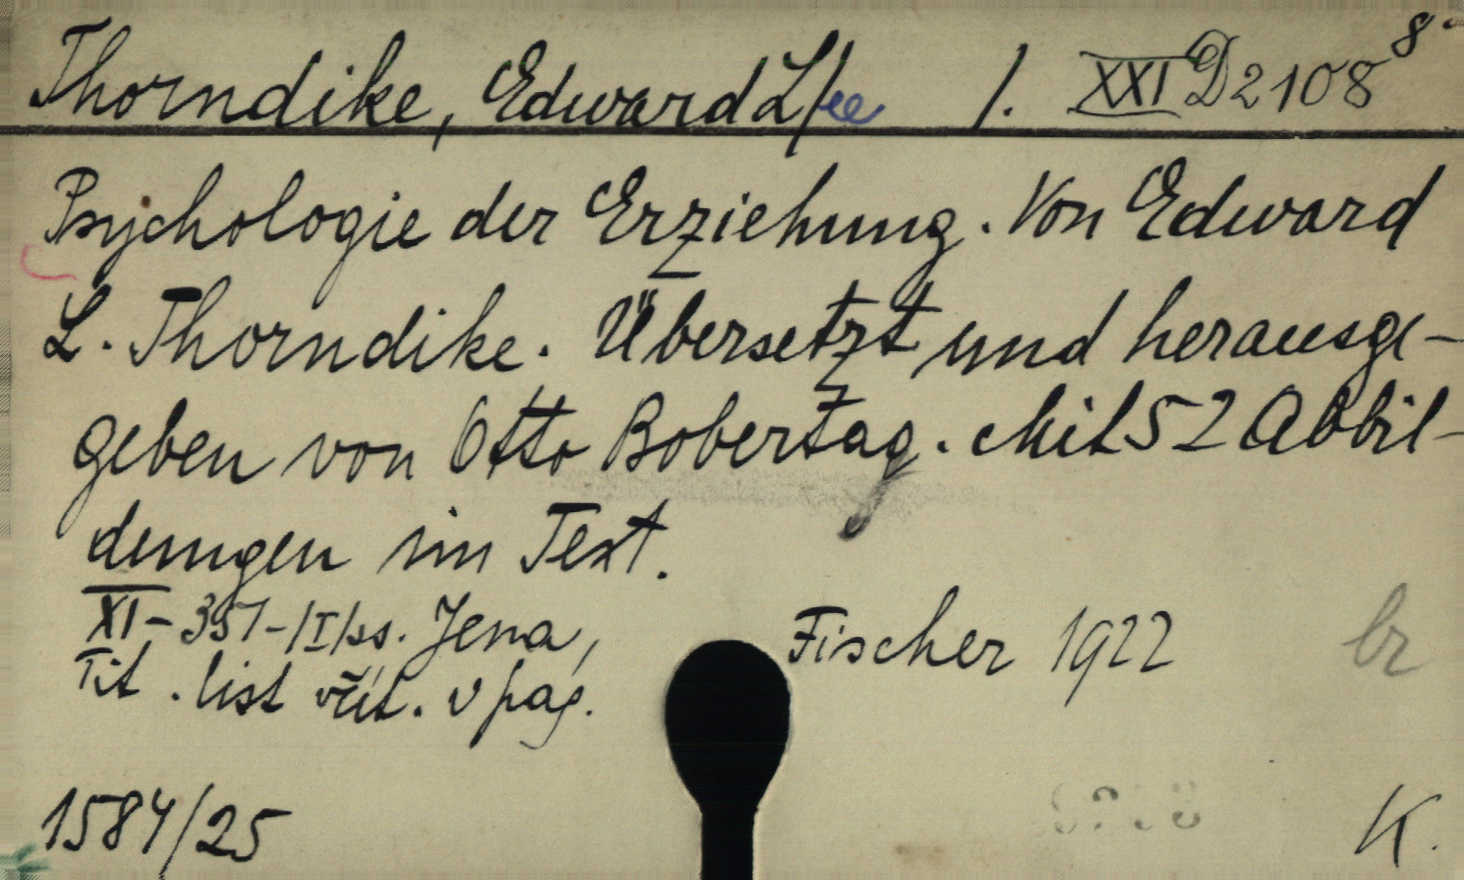 Thorndike, Edward L/ee 1. XXI D 2108 8°
Psychologie der Erziehung. Von Edward
L. Thorndike. Übersetzt und herausge-
geben von Otto Bobertag. Mit 52 Abbil-
dungen im Text.
XI - 351 - /I/ ss. Jena, Fischer 1922 br
Tit. list včít. v pag.
1584/25 K.